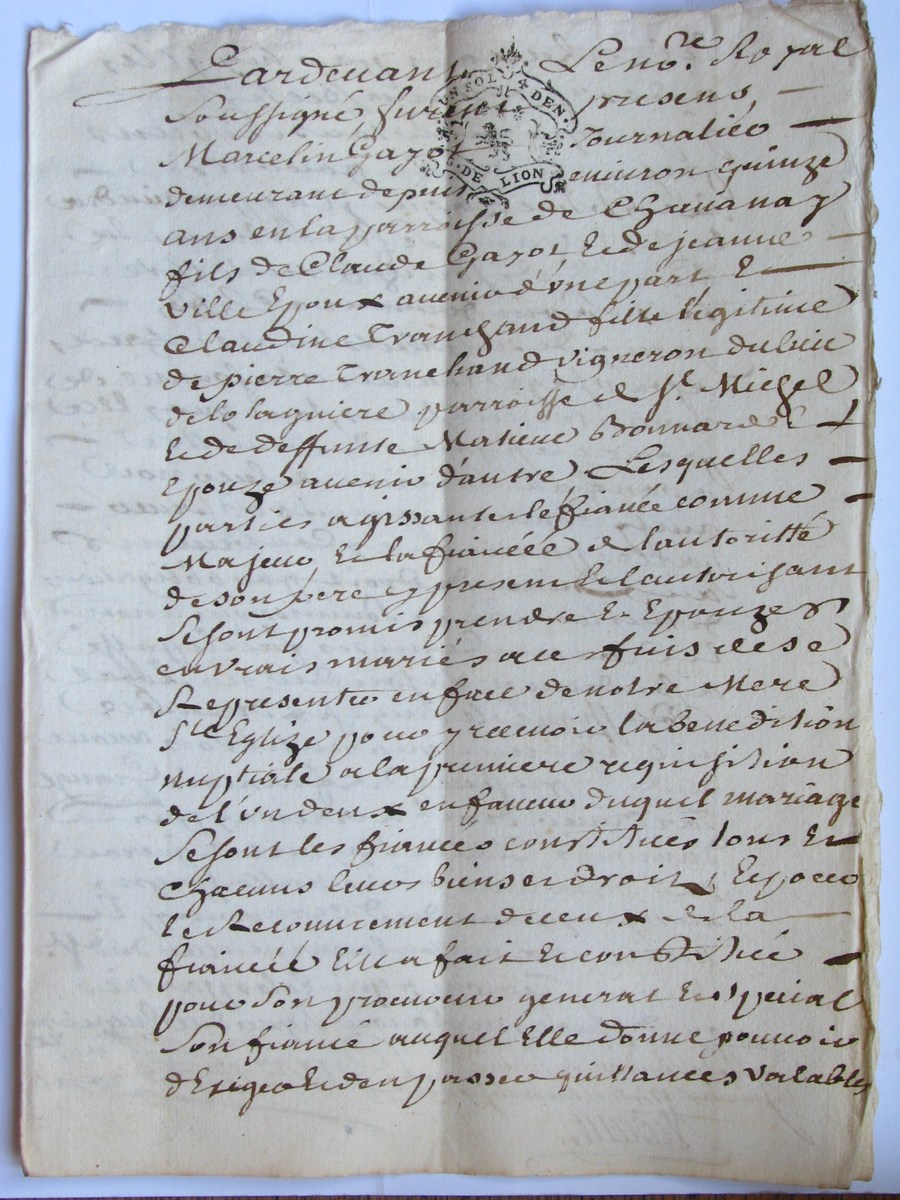 Pardevant Le no.re Royal
Soussigné furent presens
UN SOL 4 DEN.
G. DE LION
Marcelin Gazot Journalier
demeurant depuis environ quinze
ans en la parroisse de Chavanay
fils de Claude Gazot, Et de jeanne
Ville Epoux avenir d'une part Et
Claudine Tranchand fille legitime
de pierre Tranchand vigneron du lieu
de parroisse de St. Michel
Et de deffunte Matieue Bonnarde
Epouze avenir d'autre Lesquelles
parties agissantes le fiancé comme
Majeur Et la fiancéé de l'autoritté
de son pere cy present Et l'autorisant
Se sont promis prendre Et Epouzer
en vrais mariés a ces fins de se
Representer en face de notre Mere
Ste Eglize pour y recevoir la benedition
nuptiale a la premiere requisition
de l'un deux en faveur duquel mariage
Se sont les fiancés constitués tous Et
Chacuns leurs biens et droits, Et pour
le Recouvrement de ceux de la
fiancéé Elle a fait Et constitué
pour Son procureur general Et Special
Son fiancé auquel Elle donne pouvoir
d'Exiger Et d'en passer quittances valables